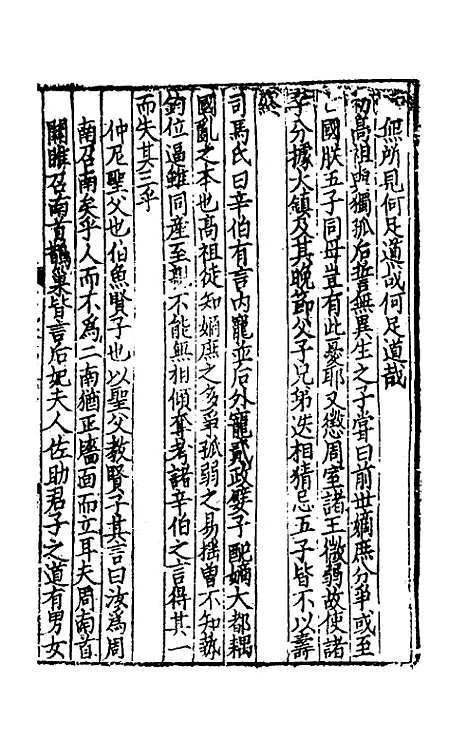 無所見何足道哉何足道哉
初髙祖與獨孤后誓無異生之子嘗曰前丗嫡庶分爭或至
亡國朕五子同母豈有此憂耶又懲周室諸王微弱故使諸
子分據大鎮及其晚節父子兄弟迭相猜忌五子皆不以壽
終
司馬氏曰辛伯有言内寵並后外寵貳政嬖子配嫡大都耦
國亂之本也髙祖徒知嫡庶之多爭孤弱之易揺曽不知埶
鈞位逼雖同産至親不能無相傾奪考諸辛伯之言得其一
而失其三乎
仲尼聖父也伯魚賢子也以聖父教賢子其言曰汝為周
南召南矣乎人而不為二南猶正牆面而立耳夫周南首
關雎召南首鵲巢皆言后妃夫人佐助君子之道有男女